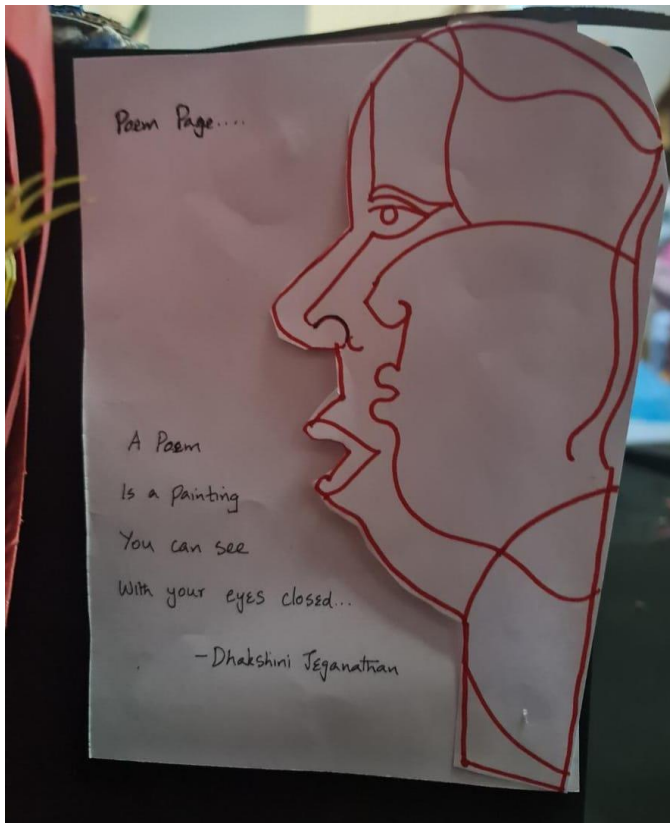 Poem Page....
A Poem
Is a painting
You can see
With your eyes closed...
-Dhakshini Jeganathan